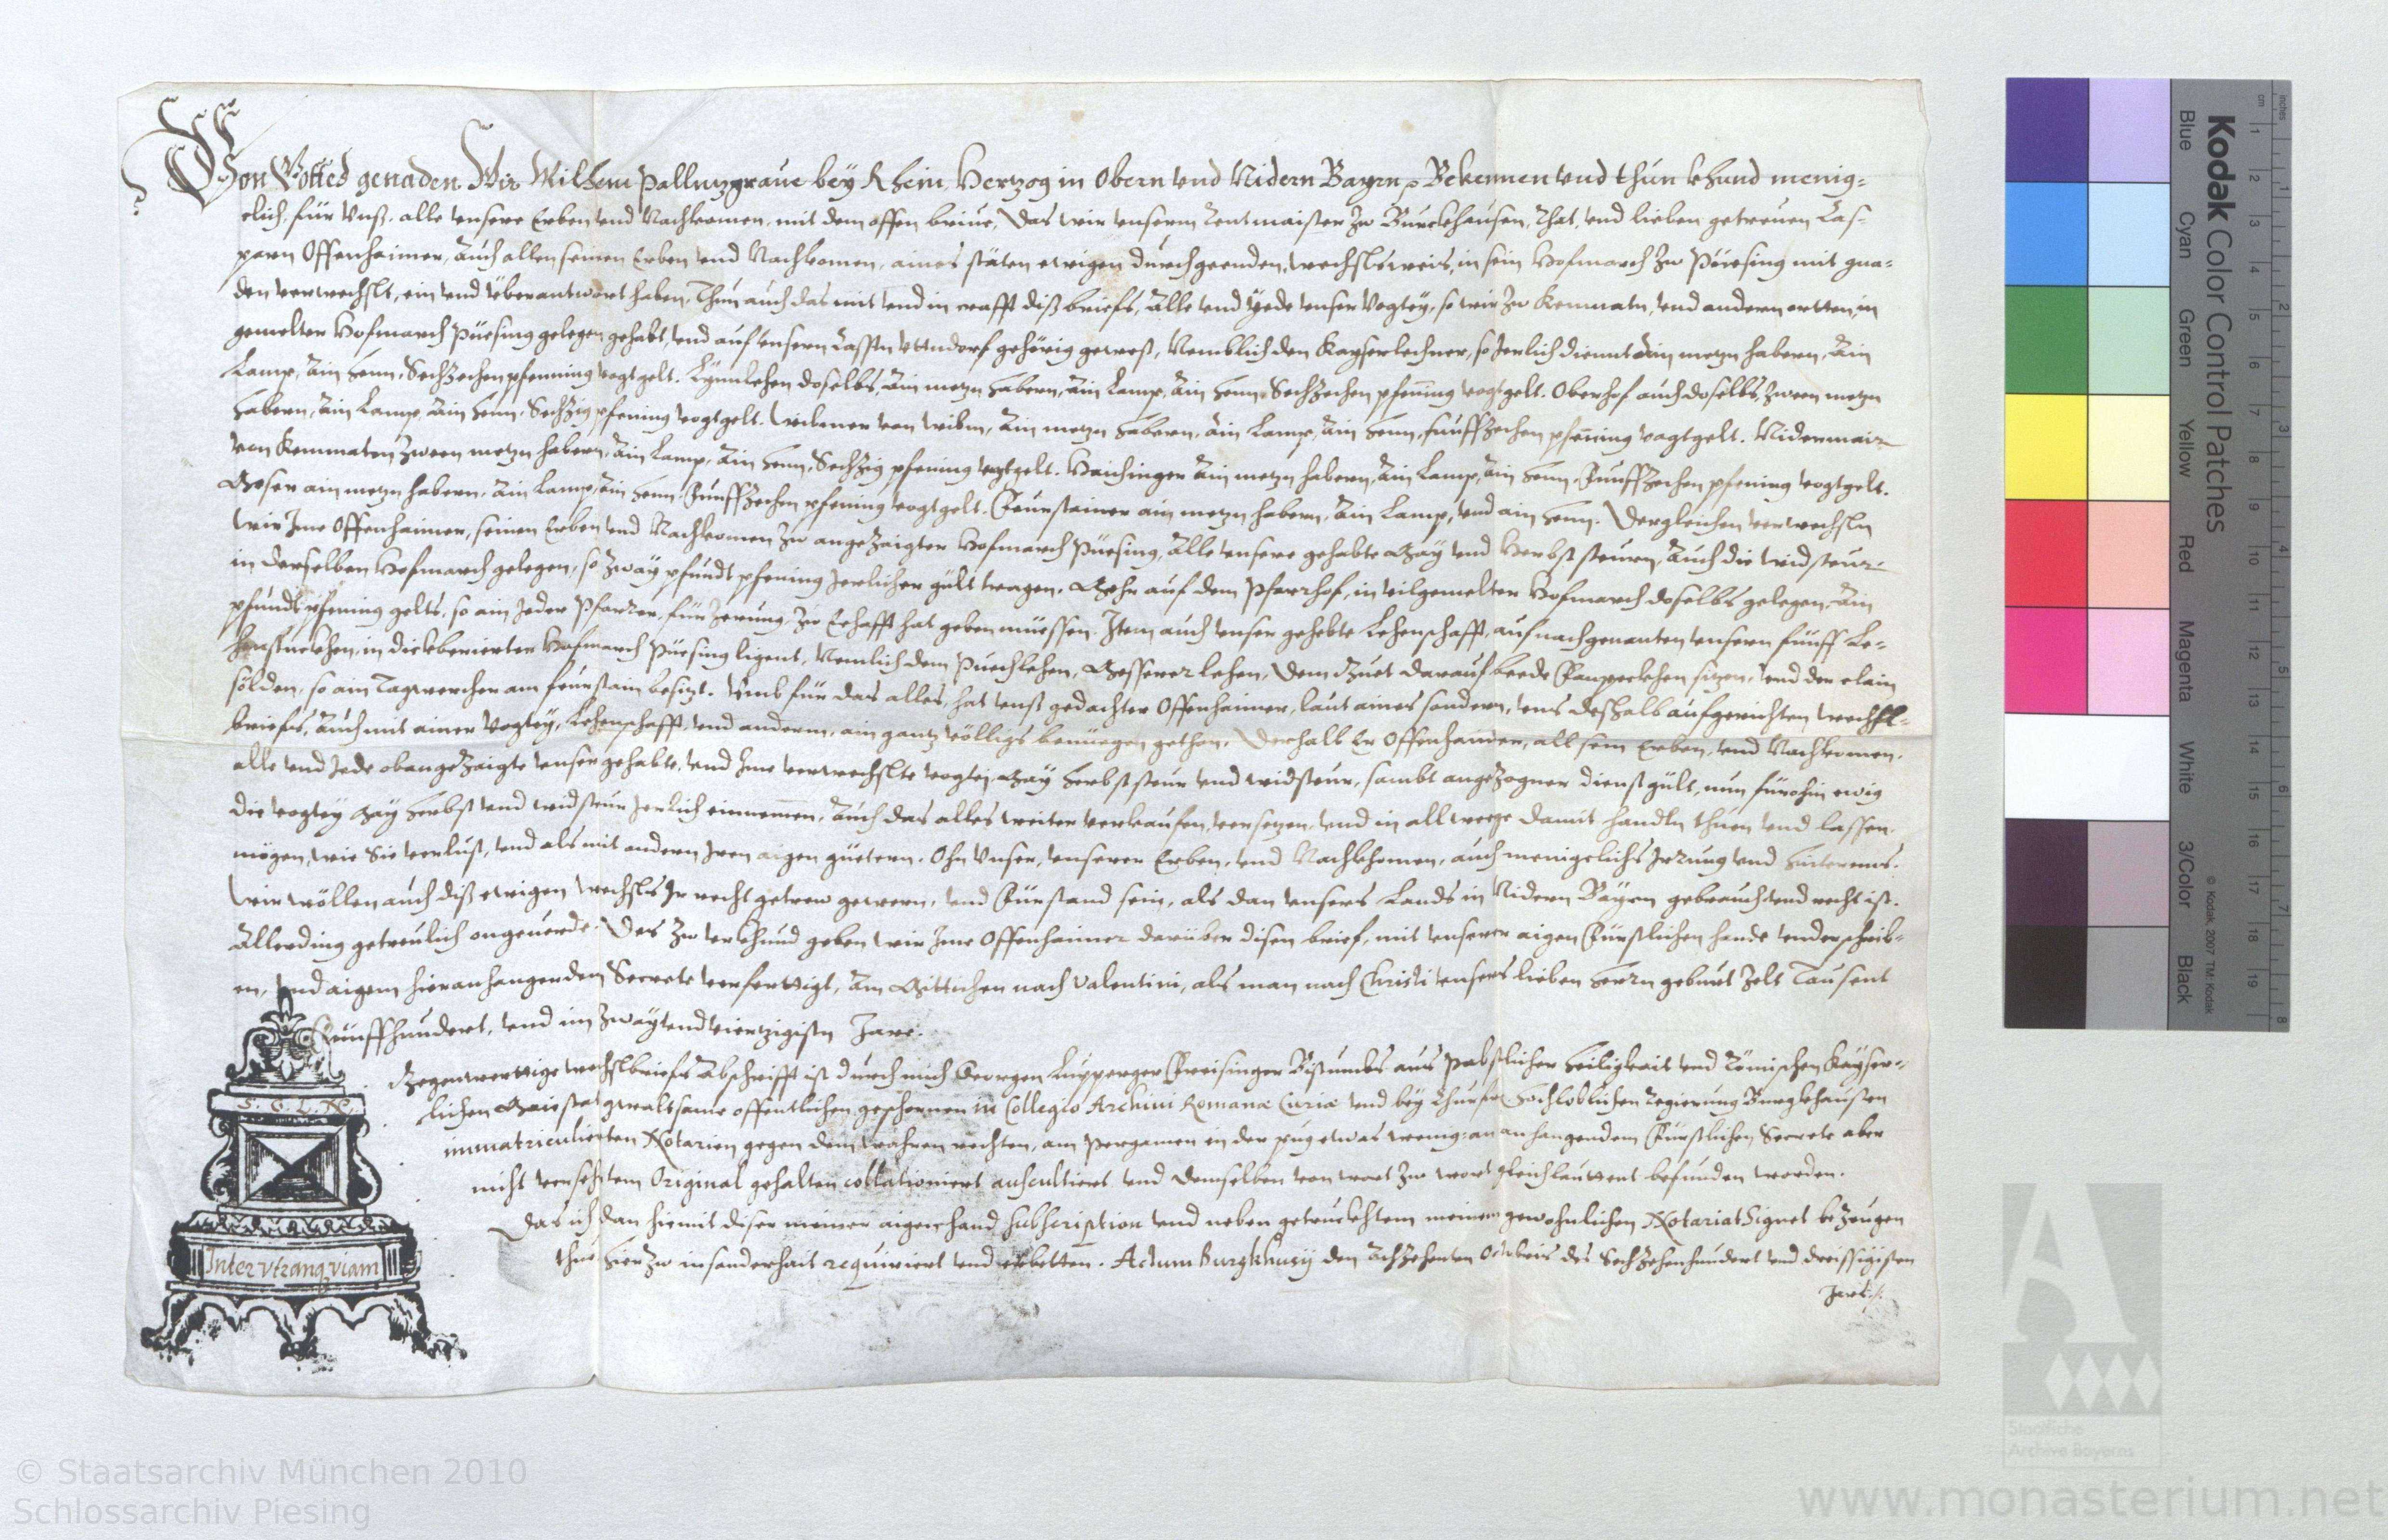 Von Gottes genaden Wir Wilhem Pallnzgraue bey Rhein, Hertzog in Obern vnd Nidern Bayrn Bekennen vnd thun khund menig=
elich, für Vnß, alle vnsere Erben vnd Nachkomen, mit dem offen brieue, Das wir vnserm Rentmaister zu Burckhausen, Rhat, vnd lieben getreuen Cas=
parn Offenhaimer, Auch allen seinen Erben vnd Nachkomen, aines stäten ewigen durchgeenden, wechslsweis, in sein Hofmarch zu Püesing mit gna=
den verwechslt, ein vnd überantwort haben, Thun auch das mit vnd in crafft diß briefs, Alle vnd Yede vnser Vogtey, so wir zu Kemnatn, vnd andern ortten, in
gemelter Hofmarch Püesing gelegen gehabt, vnd auf vnsern Casstn Uttndorf gehörig gewest, Nemblich den Kayserlechner, so Jerlich diennt Ain metzn habern, Ain
Lamp, Ain henn, Sechzechen pfenning vogtgelt. doselbs, Ain metzn habern, Ain Lamp, Ain henn, Sechzechen pfening vogtgelt. Oberhof auch doselbs, Zween metzn
habern, Ain Lamp, Ain henn, Sechzig pfening vogtgelt. von Ain metzn habern, Ain Lamp, Ain henn, funffzechen pfening vogtgelt. Nidermair
von Kemmaten Zween metzn habern, Ain Lamp, Ain henn, Sechzig pfening vogtgelt. Haichinger Ain metzn habern, Ain Lamp, Ain henn, Funffzechen pfening vogtgelt.
Moser ain metzn habern, Ain Lamp, Ain henn, Funffzechen pfening vogtgelt. Feurstainer ain metzn habern, Ain Lamp, vnd ain henn. Dergleichen verwechsln
wir Ime Offenhaimer, seinen Erben vnd Nachkomen zu angezaigter Hofmarch Püesing, Alle vnsere gehabte May vnd Herbst steurn, Auch die widsteur
in derselben Hofmarch gelegen, so zway pfundt pfening Jerlicher gült tragen. Mehr auf dem Pfarrhof, in vilgemelter Hofmarch doselbs gelegen, Ain
pfundt pfening gelts, so ain Jeder Pfarrer, für zu Ehafft hat geben müessen. Item auch vnser gehebte Lehenschafft, auf nachgenanten vnsern fünff Le=
henstuckhen, in dickberierter Hofmarch Püesing ligent, Nemlich dem Puechlehen, Messerer lehen, Dem Guet darauf beede sitzen, vnd der clain
sölden, so ain Tagwercher am feurstain besitzt. Vmb für das alles, hat vnst gedachter Offenhaimer, laut aines sondern, vns deshalb aufgerichten wechsl=
briefs, Auch mit ainer Vogtey, Lehenschafft, vnd anderm, ain gantz völligs benüegen gethon. Derhalb Er Offenhaimer, all sein Erben, vnd Nachkomen,
alle vnd Jede obangezaigte vnser gehabte, vnd Ime verwechslte vogtei, May herbststeur vnd widsteur, sambt angezogner dienst gült, nun fürohin ewig
die vogtey May herbst vnd widsteur Jerlich einnemen, Auch das alles weiter verkaufen, versetzen, vnd in all weege damit handln thuen vnd lassen,
mögen, wie Sie verlust, vnd als mit andern Iren aigen güetern. Ohn Vnser, vnserer Erben, vnd Nachkhomen, auch menigelichs Irrung vnd hindernus.
Wir wöllen auch diß ewigen wechsls Ir recht getrew gewern, vnd Fürstand sein, als dan vnsers Lands in Nidern Bayrn gebrauch vnd recht ist.
Allerding getreulich ongeuerde. Des zu vrkhund geben wir Ime Offenhaimer darüber disen brief, mit vnserer aigen Fürstlichen hande vnderschrib=
en, vnd aigem hieranhangendem Secrete verferttigt, Am Mittichen nach Valentini, als man nach Christi vnsers lieben herrn geburt zelt Tausent
Fünffhundert, vnd im zway vnd viertzigistn Jare.
Gegenwerttige wechslbriefs Abschrifft ist durch mich Georgen Freisinger Bistumbs aus Pabstlicher Heiligkait vnd Römischen Kayser=
lichen Maiestat gewaltsame offentlichen geschwornen in Collegio Archiui Romanæ Curiæ vnd bey Churfr. Hochloblichen Regierung Burgkhausen
immatriculierten Notarien gegen dem wahren rechten, am Pergamen in der pug etwas wenig: an anhangendem Fürstlichen Secrete aber
nicht versehrtem Original gehalten collationiert auscultiert vnd demselben von wort zu wort gleichlauttent befunden worden.
Das ich dan hiemit diser meiner aigen hand subscription vnd neben getruckhtem meinem gewohnlichen Notariat Signet bezeugen
thue hierzu in sonderhait requiriert vnd erbetten. Actum Burgkhusij den Achzehenten Octobris des Sechzehenhundert vnd dreissigisten
Jars.
Inter vtramq viam
Kodak Color Control Patches
© Kodak, 2007 TM: Kodak
Blue Cyan Green Yellow Red Magenta White 3/Color Black
inches 1 2 3 4 5 6 7 8
cm 1 2 3 4 5 6 7 8 9 10 11 12 13 14 15 16 17 18 19
Staatliche
Archive Bayerns
© Staatsarchiv München 2010
Schlossarchiv Piesing
www.monasterium.net